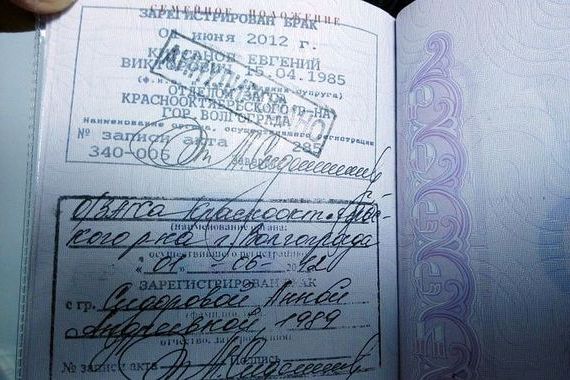 СЕМЕЙНОЕ ПОЛОЖЕНИЕ
ЗАРЕГИСТРИРОВАН БРАК
ИЮНЯ 2012 Г.
ЕВГЕНИЙ
15.04.1985
супруга)
КРАСНООКТЯБРЬСКОГО Р-НА
ГОР. ВОЛГОГРАДА
наименование органа, осуществившего регистрацию
№ записи акта 285
340-006
ОЗАГСа Краснооктябрьс-
кого р-на г. Волгограда
(наименование органа,
осуществившего регистрацию)
"01" 06
ЗАРЕГИСТРИРОВАН БРАК
с гр. Сидоровой Анной
Андреевной, 1989
отчество, дата рождения)
№ записи акта Подпись